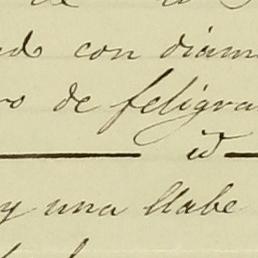 de
con diam
ro de feligra
id
y una llabe